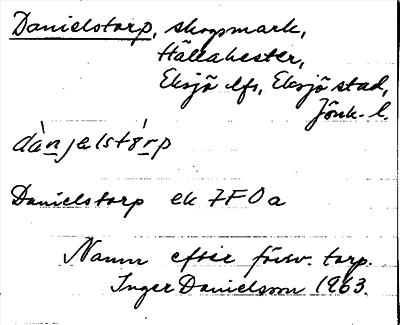 Danielstorp, skogsmark,
Hällahester,
Eksjö lfs, Eksjö stad,
Jönk. l.
dànjəlstórp
Danielstorp ek 7F0a
Namn efter försv. torp.
Inger Danielsson 1963.